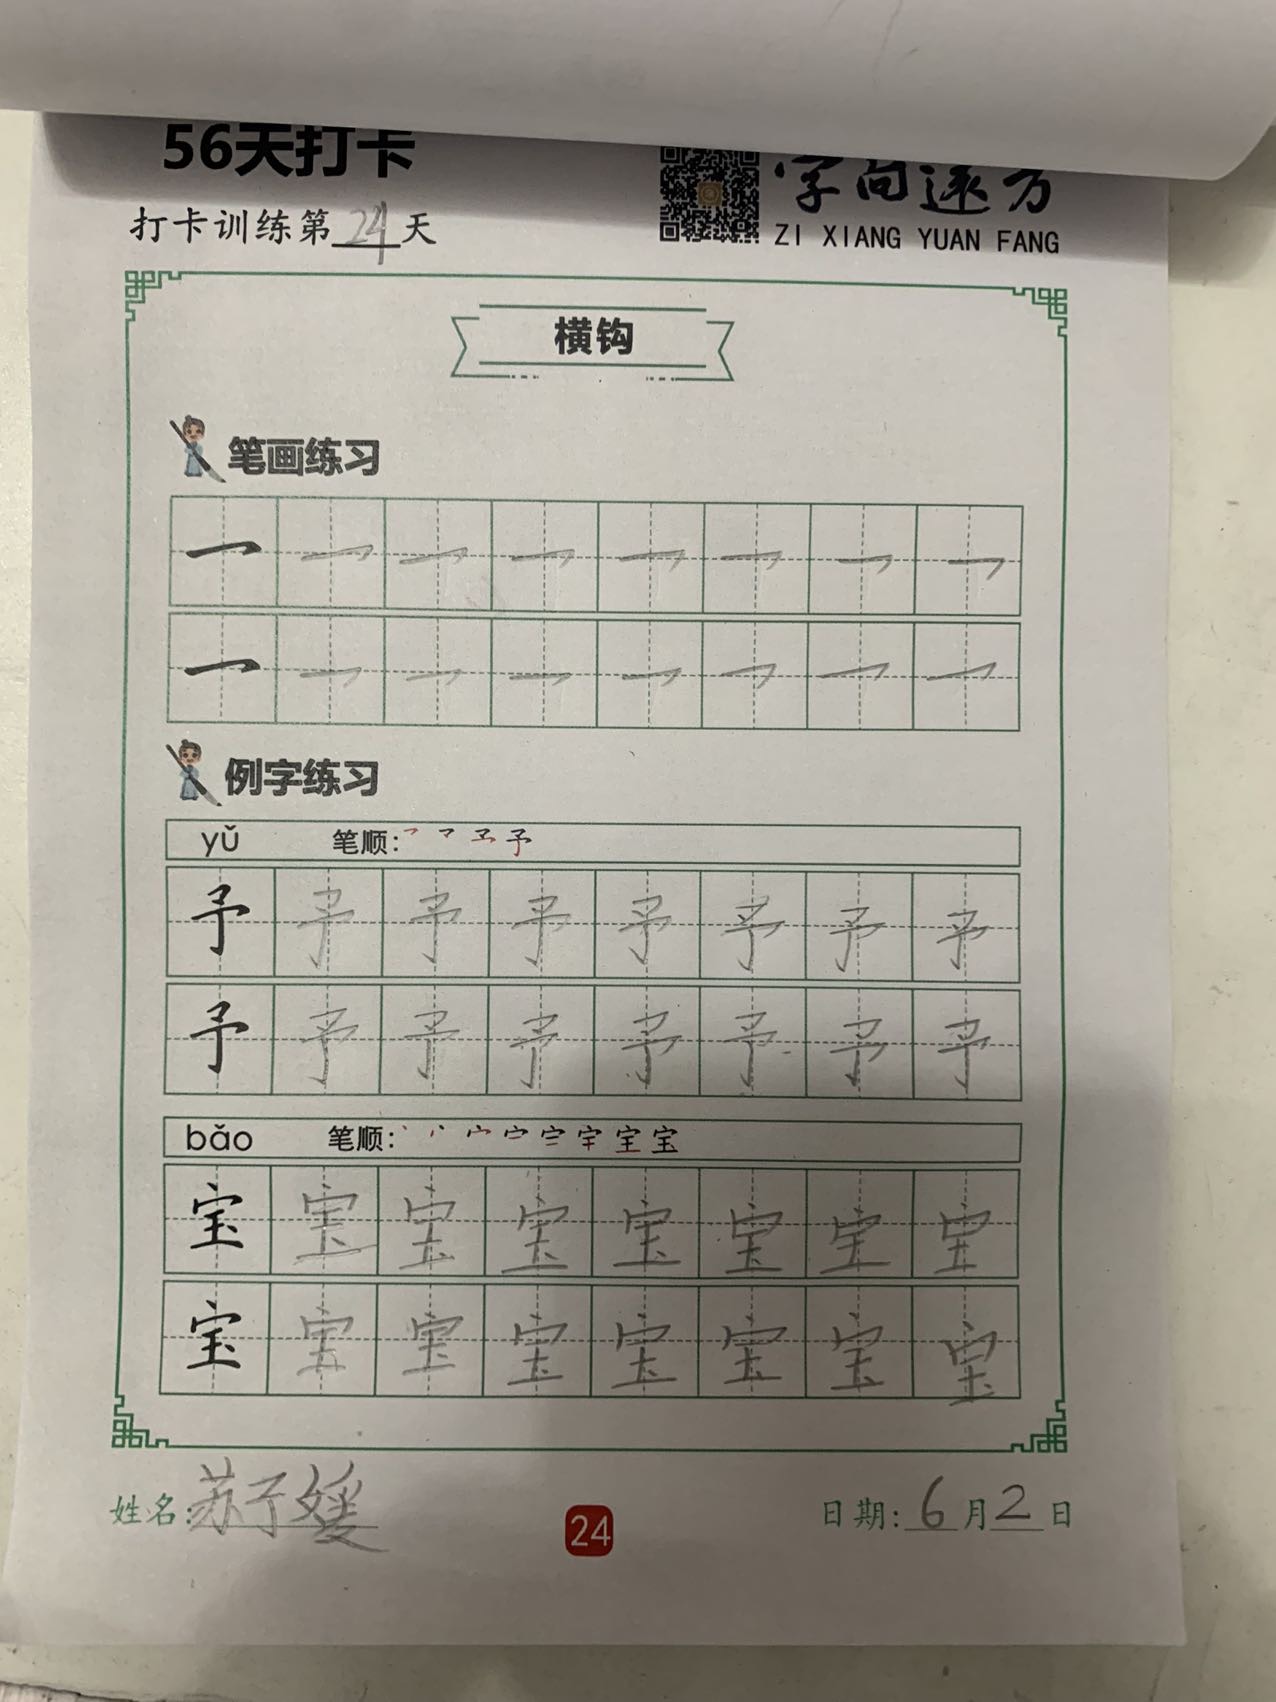 56天打卡
字向远方
打卡训练第24天
ZI XIANG YUAN FANG
横钩
笔画练习
㇖ ㇖ ㇖ ㇖ ㇖ ㇖ ㇖ ㇖
㇖ ㇖ ㇖ ㇖ ㇖ ㇖ ㇖ ㇖
例字练习
yǔ 笔顺:
予 予 予 予 予 予 予 予
予 予 予 予 予 予 予 予
bǎo 笔顺:
宝 宝 宝 宝 宝 宝 宝 宝
宝 宝 宝 宝 宝 宝 宝 宝
姓名:苏子媛
24
日期:6月2日